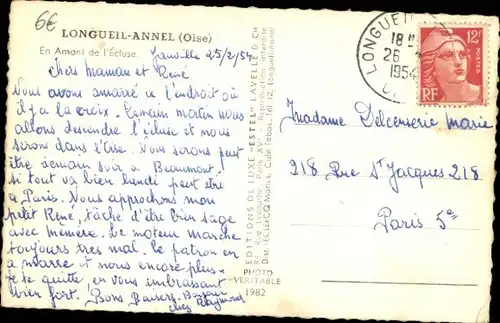 6€
LONGUEIL-ANNEL (Oise)
En Amont de l'Écluse.
Janville 25/2/54
Chers Maman et René
Nous avons amarré ici l'endroit où
il y a la croix. Demain matin nous
allons descendre l'écluse et nous
serons dans l'Oise. Nous serons peut
être demain soir à Beaumont.
si tout va bien lundi peut être
à Paris. Nous approchons mon
petit René, tâche d'être bien sage
avec mémère. Le moteur marche
toujours tres mal. Le patron en
a marre et nous encore plus.
Je te quitte, en vous embrassant
bien fort. Bons Baisers. Bonjour
chez Raymond
EDITIONS DE LUXE "ESTEL" LAVELLE & Cie
Paris XVe - Reproduction interdite
Café Tabac, 12, Longueil-Annel
PHOTO
VÉRITABLE
1982
LONGUEIL
18 H
26
1954
12F
POSTES
RF
Madame Delcenserie Marie
218 Rue St Jacques 218
Paris 5e